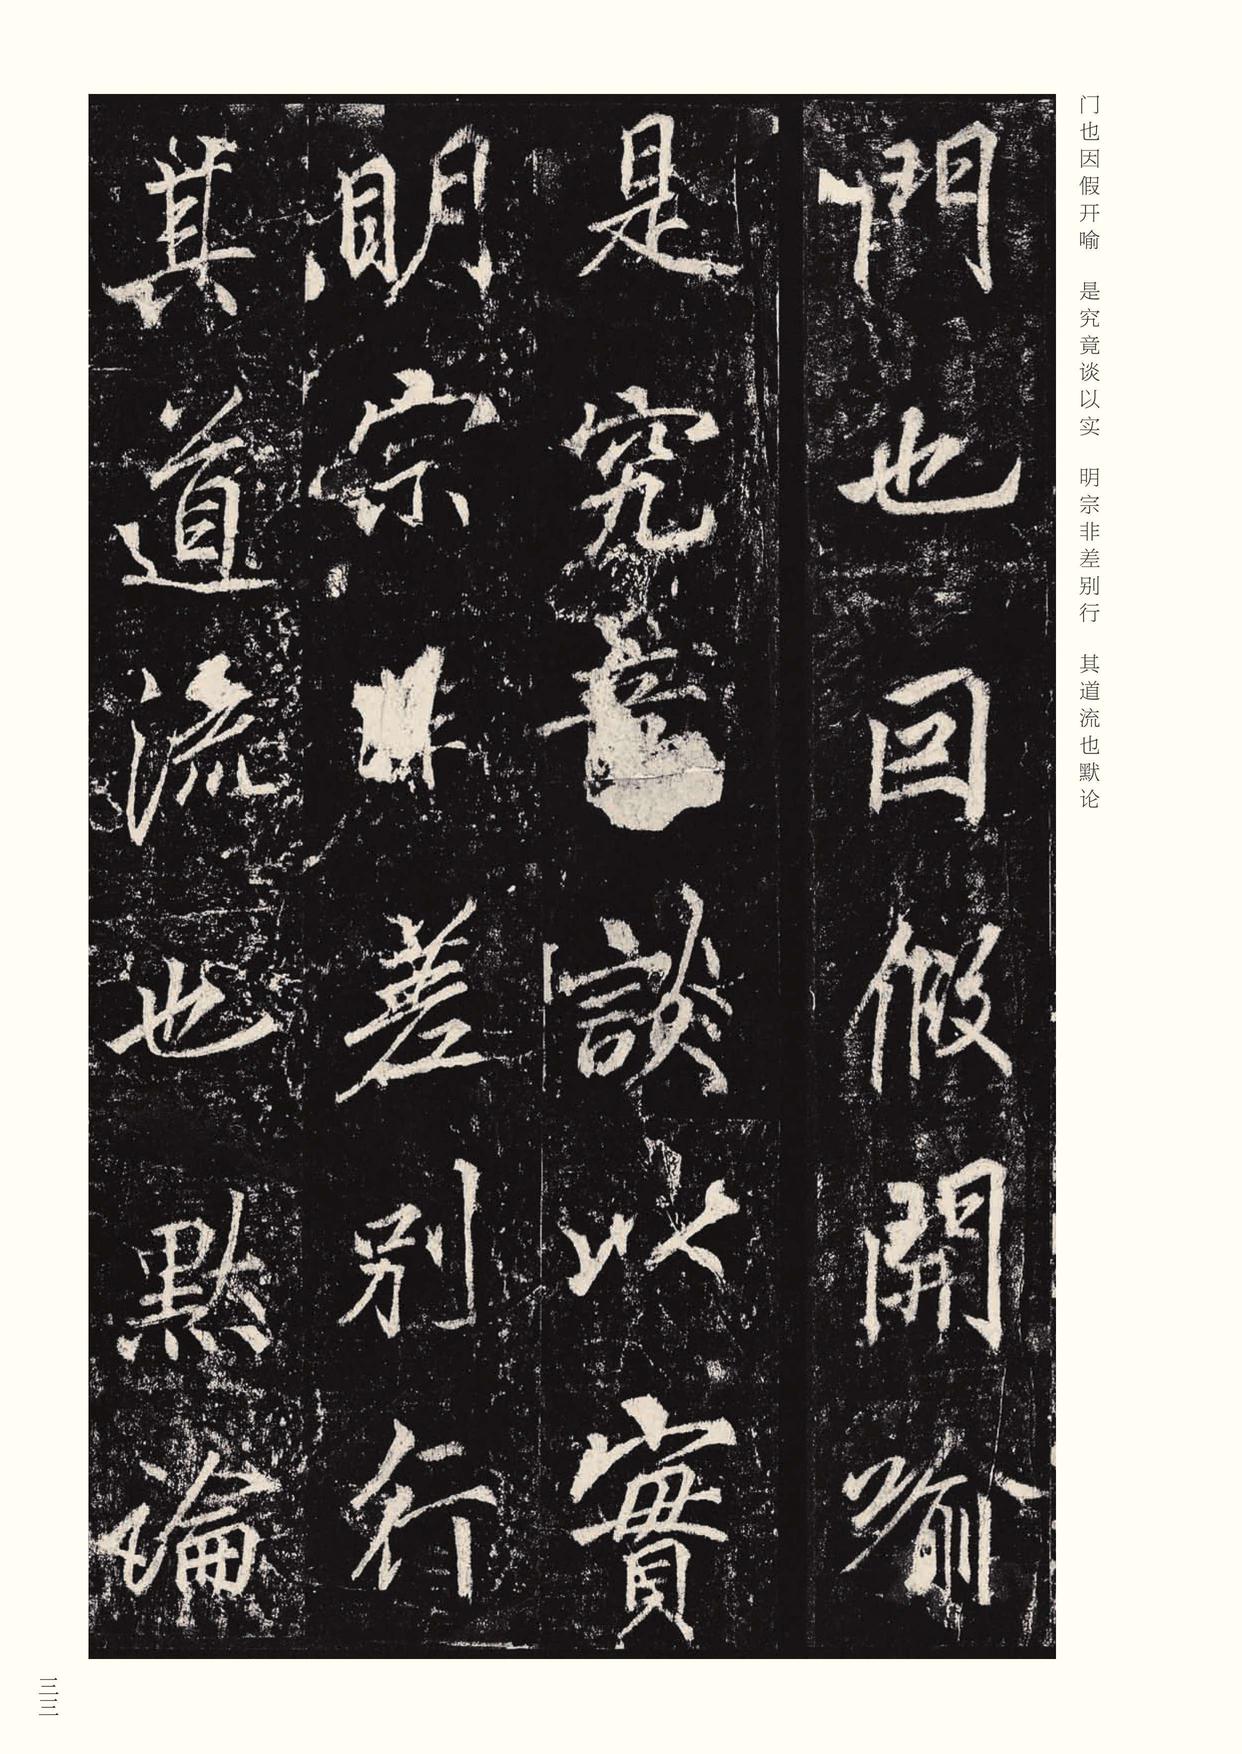 門也因假開喻
是究竟談以實
明宗非差別行
其道流也默論
门也因假开喻　是究竟谈以实　明宗非差别行　其道流也默论
三三